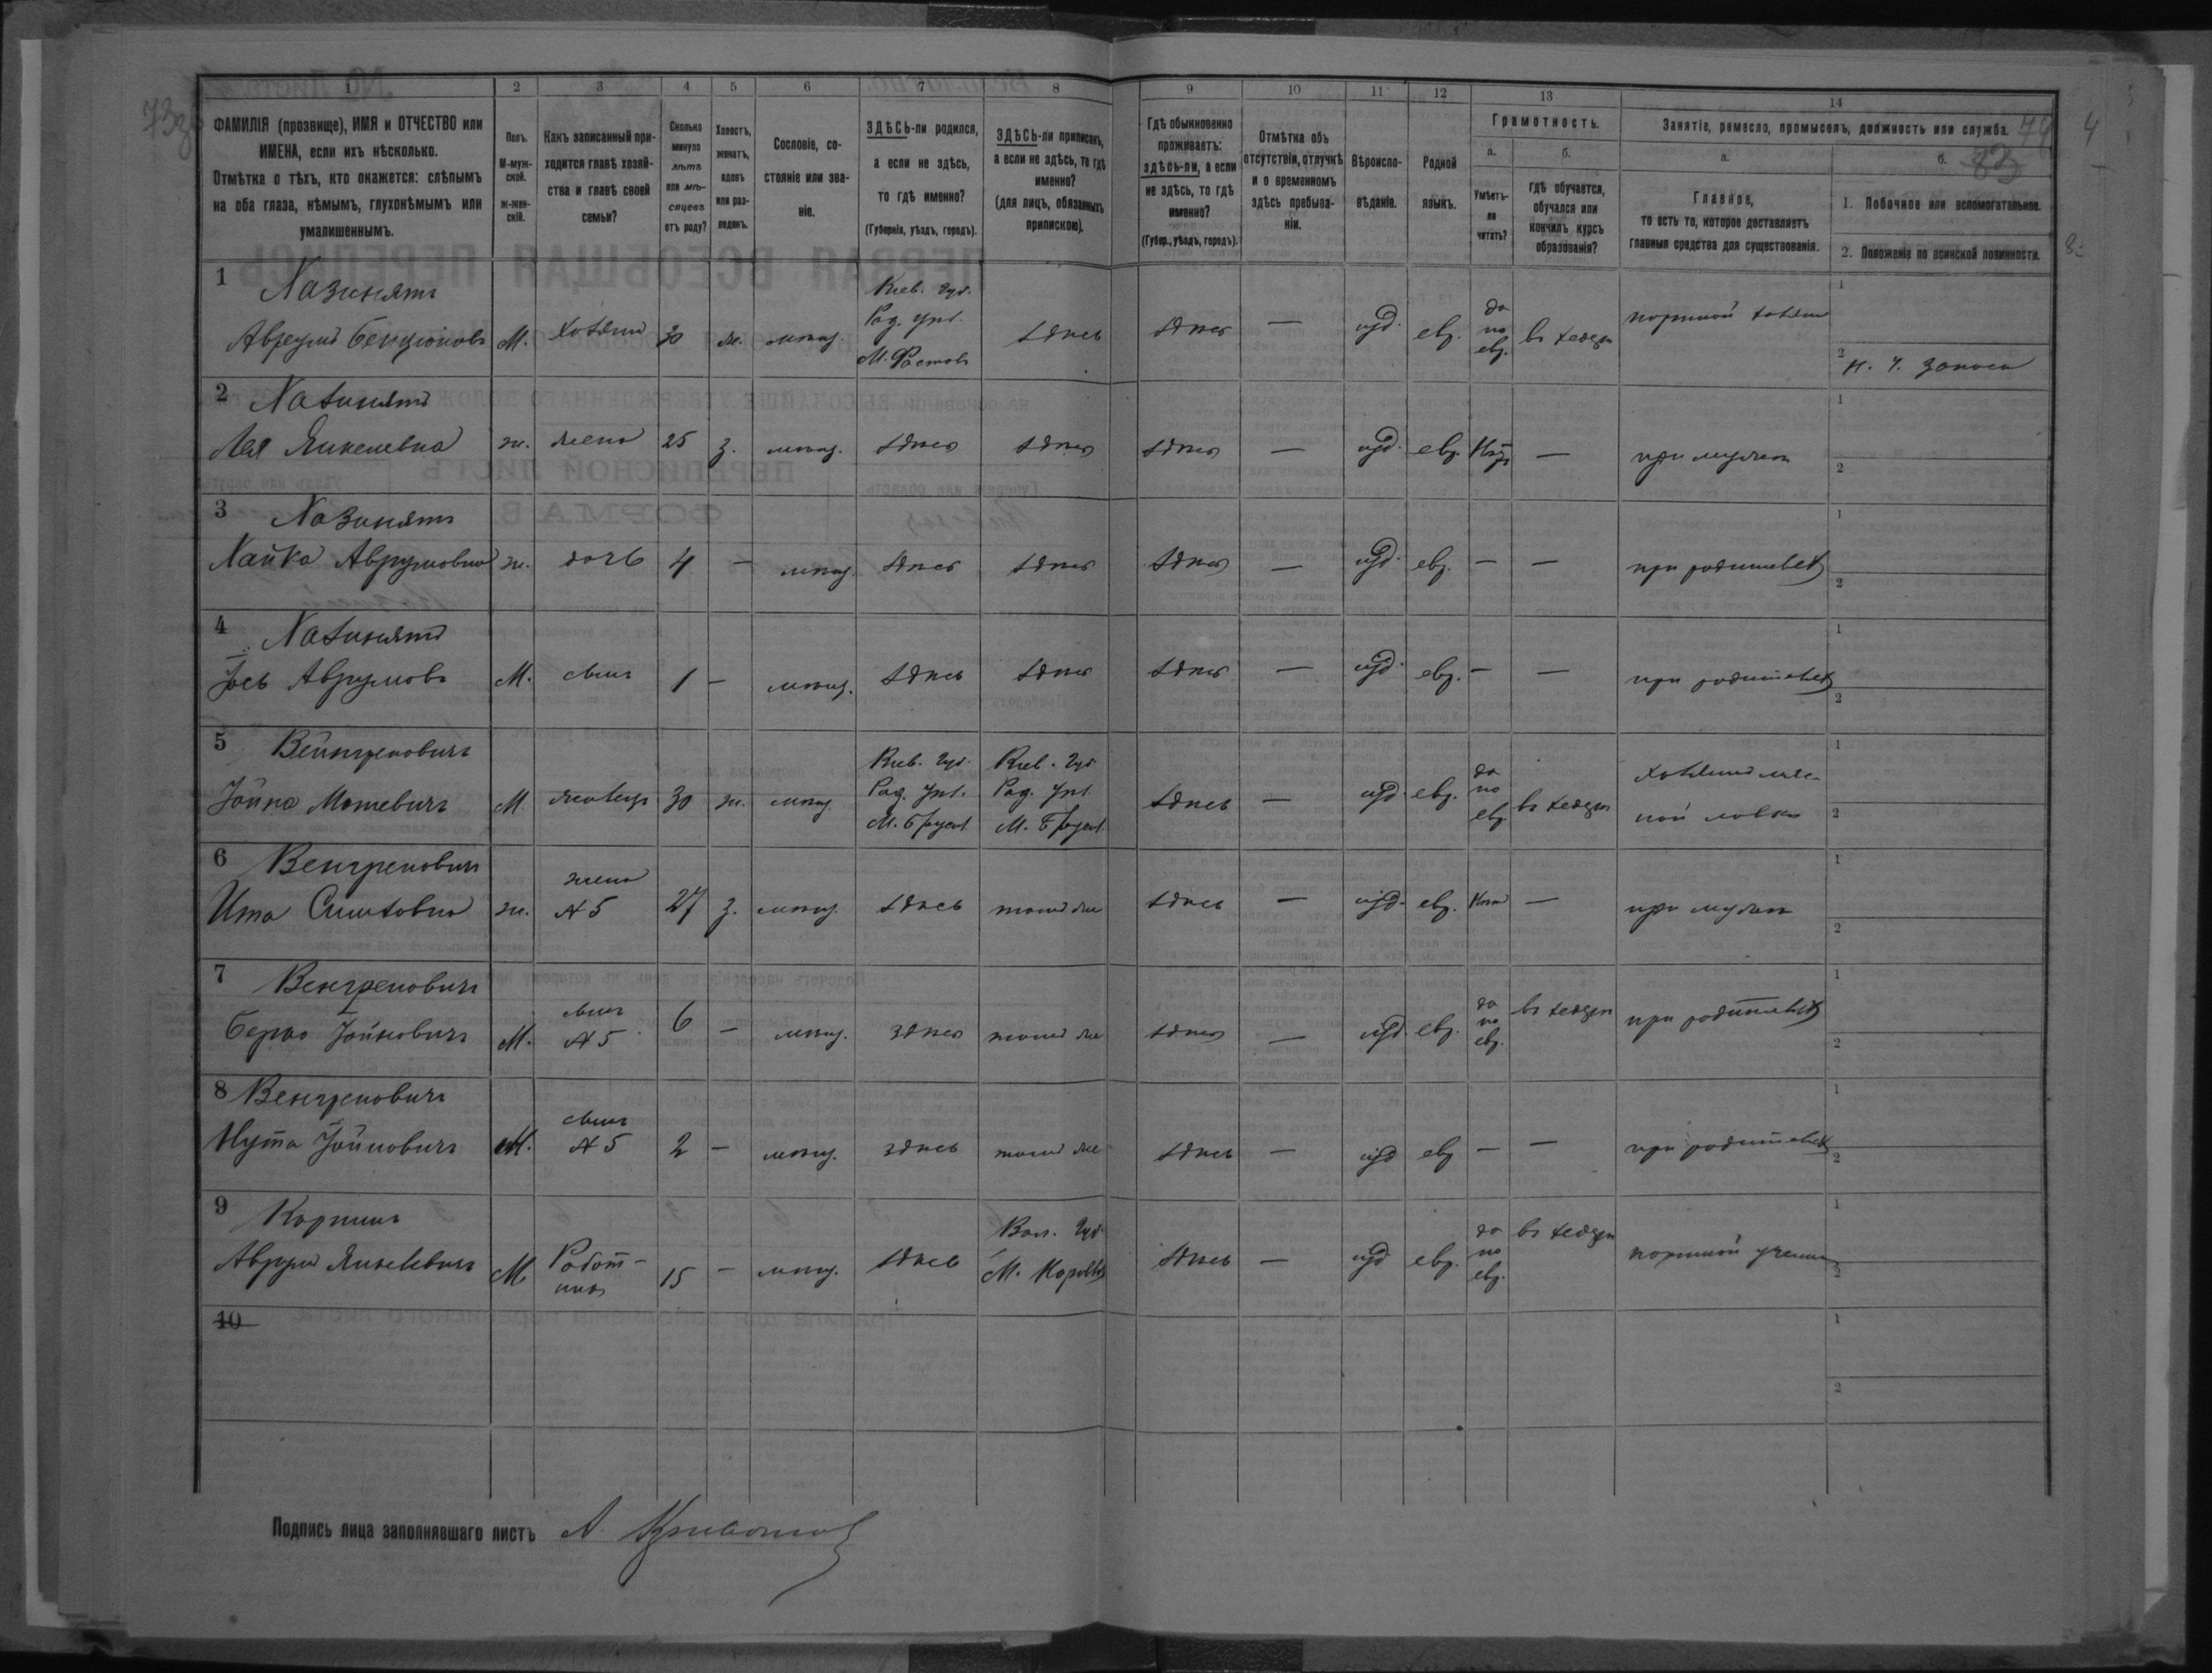 1 2 3 4 5 6 7 8 9 10 11 12 13 14
ФАМИЛІЯ (прозвище), ИМЯ и ОТЧЕСТВО или ИМЕНА, если ихъ нѣсколько.
Отмѣтка о тѣхъ, кто окажется: слѣпымъ на оба глаза, нѣмымъ, глухонѣмымъ или умалишеннымъ.
Полъ. М-мужской. ж-женскій.
Какъ записанный приходится главѣ хозяйства и главѣ своей семьи?
Сколько минуло лѣтъ или мѣсяцевъ отъ роду?
Холостъ, женатъ, вдовъ или разведенъ.
Сословіе, состояніе или званіе.
ЗДѢСЬ-ли родился, а если не здѣсь, то гдѣ именно? (Губернія, уѣздъ, городъ).
ЗДѢСЬ-ли приписанъ, а если не здѣсь, то гдѣ именно? (для лицъ, обязанныхъ припискою).
Гдѣ обыкновенно проживаетъ: здѣсь-ли, а если не здѣсь, то гдѣ именно? (Губер., уѣздъ, городъ).
Отмѣтка объ отсутствіи, отлучкѣ и о временномъ здѣсь пребываніи.
Вѣроисповѣданіе.
Родной языкъ.
Грамотность.
а. Умѣетъ-ли читать?
б. гдѣ обучается, обучался или кончилъ курсъ образованія?
Занятіе, ремесло, промыселъ, должность или служба.
а. Главное, то есть то, которое доставляетъ главныя средства для существованія.
б.
1. Побочное или вспомогательное.
2. Положеніе по воинской повинности.
1 Хазинятъ
Аврумъ Бенціоновъ М. хозяинъ 30 ж. мѣщ. Кіев. губ. Рад. уѣз. М. Фастовъ здѣсь здѣсь — іуд. евр. да по евр. въ хедерѣ портной хозяинъ
2 Хазинятъ
Лея Янкелевна ж. жена 25 з. мѣщ. здѣсь здѣсь здѣсь — іуд. евр. Нѣтъ — при мужѣ
3 Хазинятъ
Хайка Аврумовна ж. дочь 4 — мѣщ. здѣсь здѣсь здѣсь — іуд. евр. — — при родителяхъ
4 Хазинятъ
Іось Аврумовъ М. сынъ 1 — мѣщ. здѣсь здѣсь здѣсь — іуд. евр. — — при родителяхъ
5 Венгреновичъ
Іойна Мошевичъ М. жилецъ 30 ж. мѣщ. Кіев. губ. Рад. уѣз. М. Брусил. Кіев. губ. Рад. уѣз. М. Брусил. здѣсь — іуд. евр. да по евр. въ хедерѣ хозяинъ мяс-
ной лавки
6 Венгреновичъ
Ита ж. жена № 5 27 з. мѣщ. здѣсь тамъ же здѣсь — іуд. евр. Нѣтъ — при мужѣ
7 Венгреновичъ
Берко Іойновичъ М. сынъ № 5 6 — мѣщ. здѣсь тамъ же здѣсь — іуд. евр. да по евр. въ хедерѣ при родителяхъ
8 Венгреновичъ
Нута Іойновичъ М. сынъ № 5 2 — мѣщ. здѣсь тамъ же здѣсь — іуд. евр. — — при родителяхъ
9
Аврум Янкелевичъ М. Работникъ 15 — мѣщ. здѣсь Вол. губ. здѣсь — іуд. евр. да по евр. въ хедерѣ портной ученик
10
Подпись лица заполнявшаго листъ А.